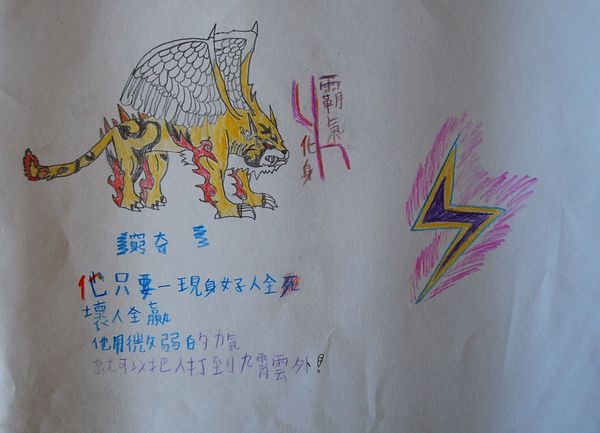 霸氣
化身
窮奇
他只要一現身好人全死
壞人全贏
他用微弱的力氣
就可以把人打到九霄雲外!